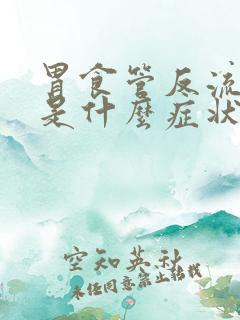 胃食管反流
是什麼症狀
空知英秋
未经同意禁止转载